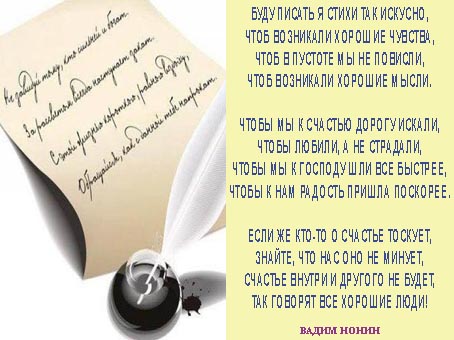 Не завидуй тому, кто сильней и богат.
За рассветом всегда наступает закат.
С этой жизнью короткою, равною вздоху,
Обращайся, как с данной тебе напрокат.
БУДУ ПИСАТЬ Я СТИХИ ТАК ИСКУСНО,
ЧТОБ ВОЗНИКАЛИ ХОРОШИЕ ЧУВСТВА,
ЧТОБ В ПУСТОТЕ МЫ НЕ ПОВИСЛИ,
ЧТОБ ВОЗНИКАЛИ ХОРОШИЕ МЫСЛИ.
ЧТОБЫ МЫ К СЧАСТЬЮ ДОРОГУ ИСКАЛИ,
ЧТОБЫ ЛЮБИЛИ, А НЕ СТРАДАЛИ,
ЧТОБЫ МЫ К ГОСПОДУ ШЛИ ВСЕ БЫСТРЕЕ,
ЧТОБЫ К НАМ РАДОСТЬ ПРИШЛА ПОСКОРЕЕ.
ЕСЛИ ЖЕ КТО-ТО О СЧАСТЬЕ ТОСКУЕТ,
ЗНАЙТЕ, ЧТО НАС ОНО НЕ МИНУЕТ,
СЧАСТЬЕ ВНУТРИ И ДРУГОГО НЕ БУДЕТ,
ТАК ГОВОРЯТ ВСЕ ХОРОШИЕ ЛЮДИ!
ВАДИМ НОНИН